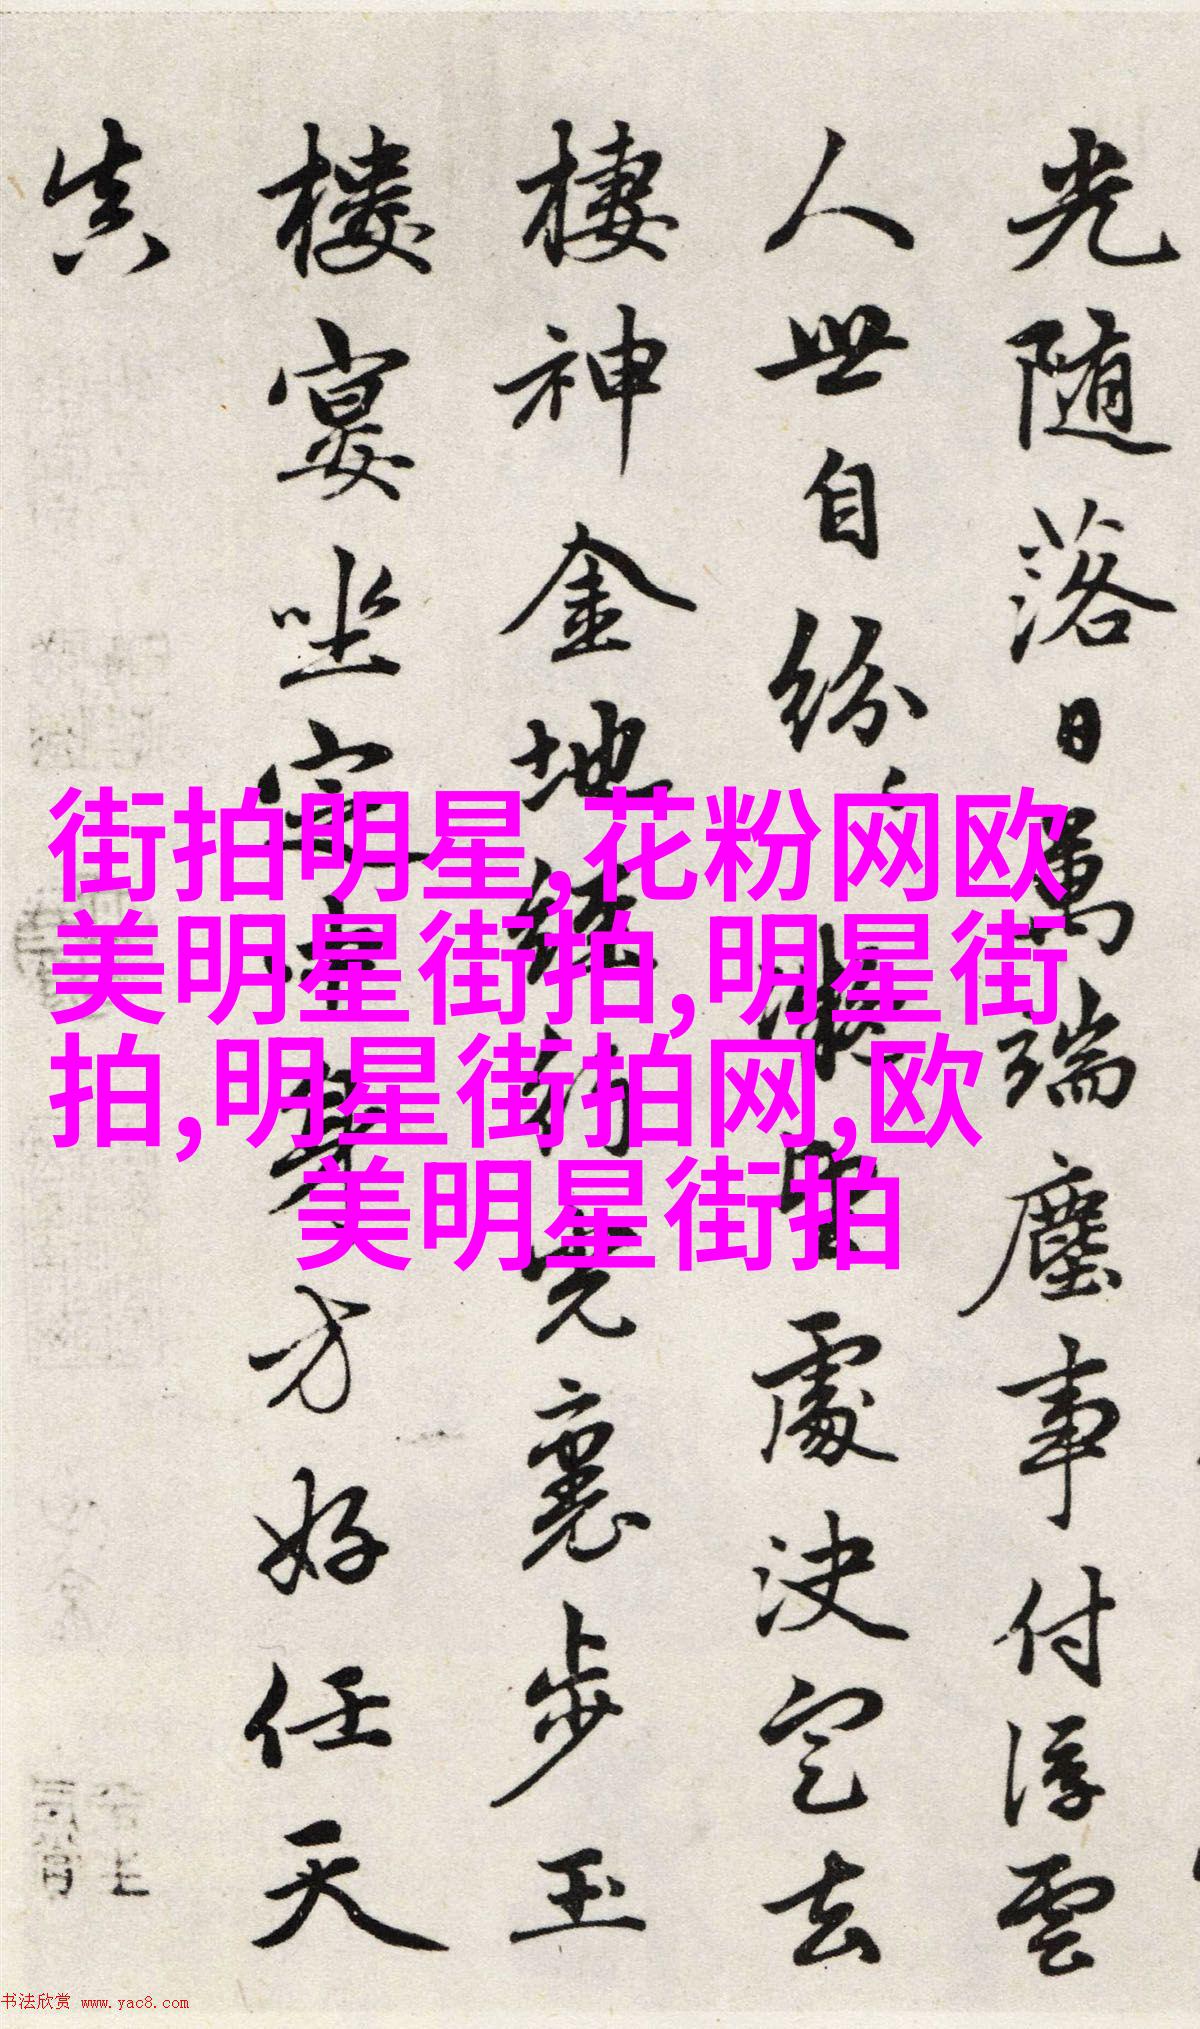 光随落日萬端塵事付浮雲
人世自紛處決定去
棲神金地經行裏步玉
樓宴坐方好任天
真
街拍明星,花粉网欧
美明星街拍,明星街
拍,明星街拍网,欧
美明星街拍
书法欣赏 www.yac8.com